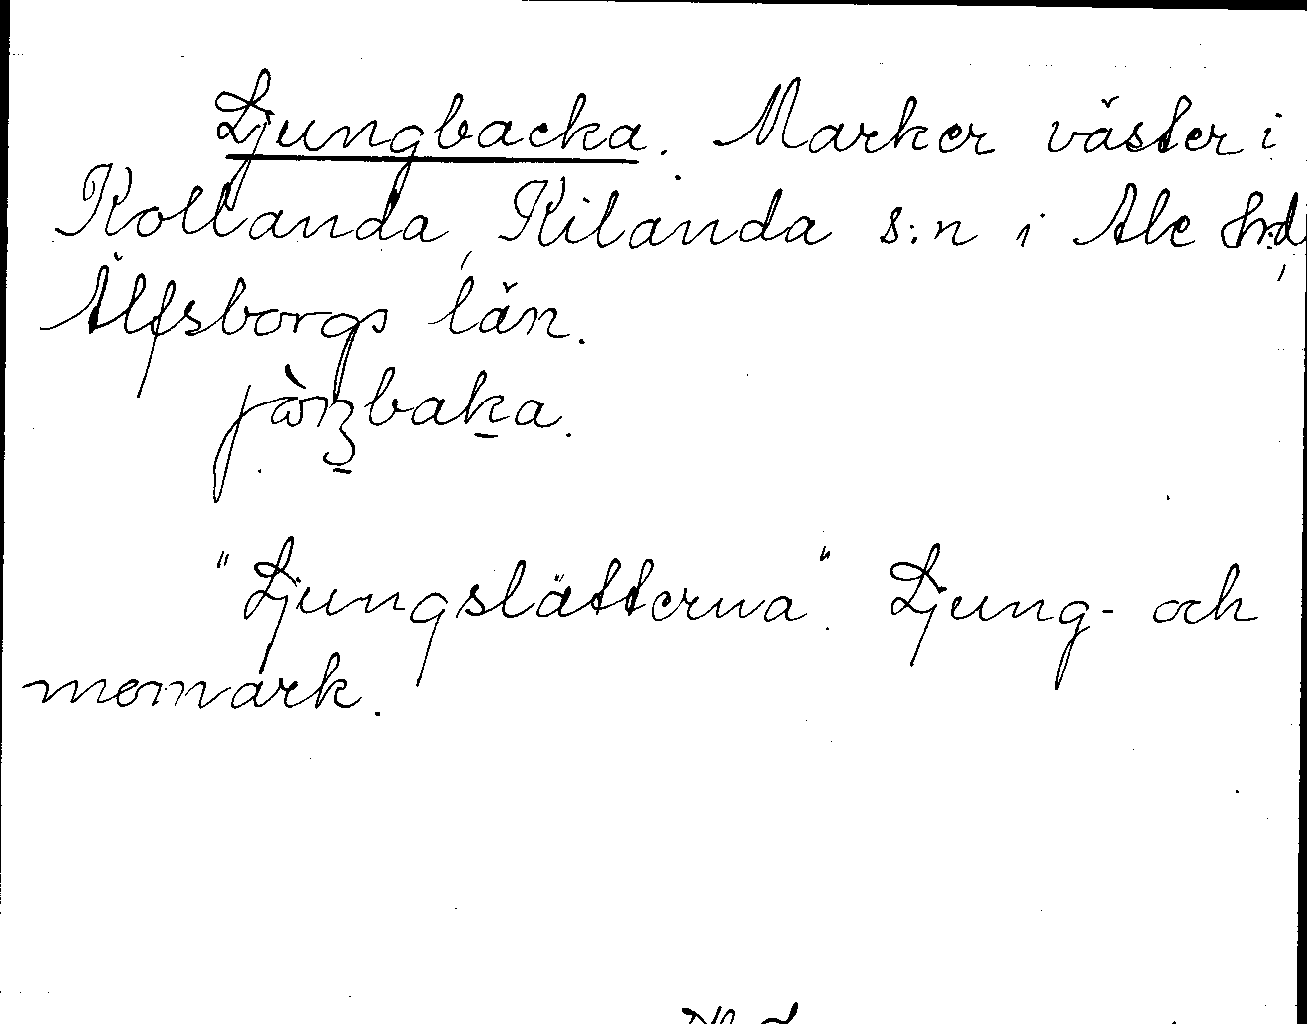 Ljungbacka. Marker väster i
Kollanda, Kilanda s:n i Ale hd,
Älfsborgs län.
"Ljungslätterna". Ljung- och
momark.